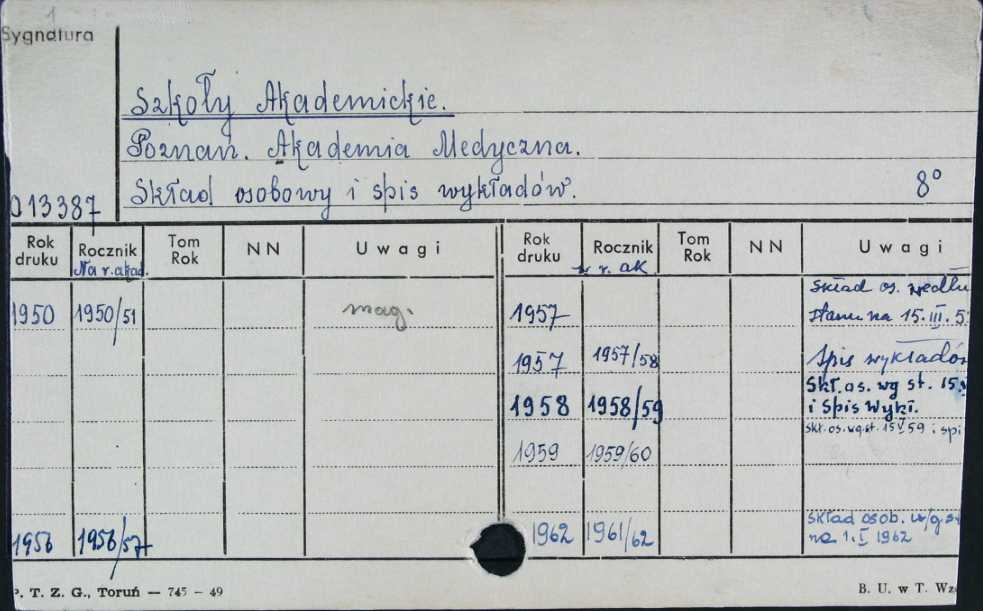 Sygnatura
Szkoły Akademickie.
Poznań. Akademia Medyczna.
Skład osobowy i spis wykładów. 8°
013387
Rok druku Rocznik Tom Rok NN Uwagi Rok druku Rocznik Tom Rok NN Uwagi
Na r. akad. w r. ak
1950 1950/51 mag. 1957 Skład os. wedłu
stanu na 15.III.5
1957 1957/58 Spis wykładów
1958 1958/59 Skł. os. wg st. 15.
i Spis Wykł.
1959 1959/60 Skł. os. wg. st. 15 V 59 i spi
1956 1956/57 1962 1961/62 Skład osob. w/g s
na 1.I 1962
P. T. Z. G., Toruń — 745 - 49 B. U. w T. Wz